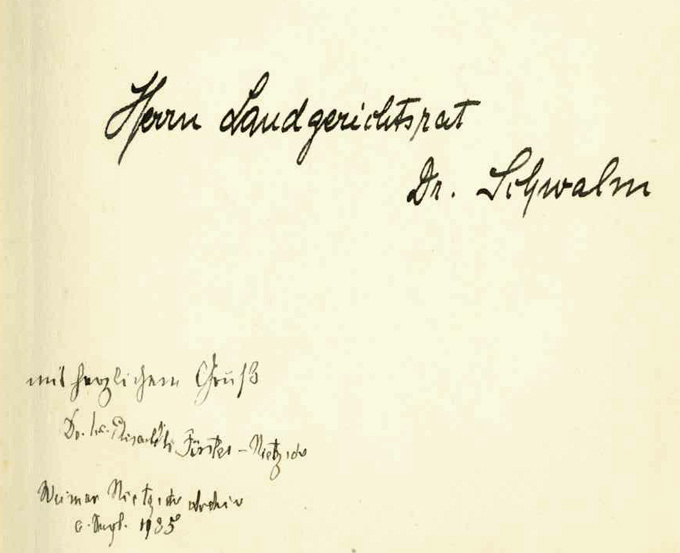 Herrn Landgerichtsrat
Dr. Schwalm
mit herzlichem Gruß
Dr. h.c. Elisabeth Förster-Nietzsche
Weimar Nietzsche Archiv
6. Sept. 1935